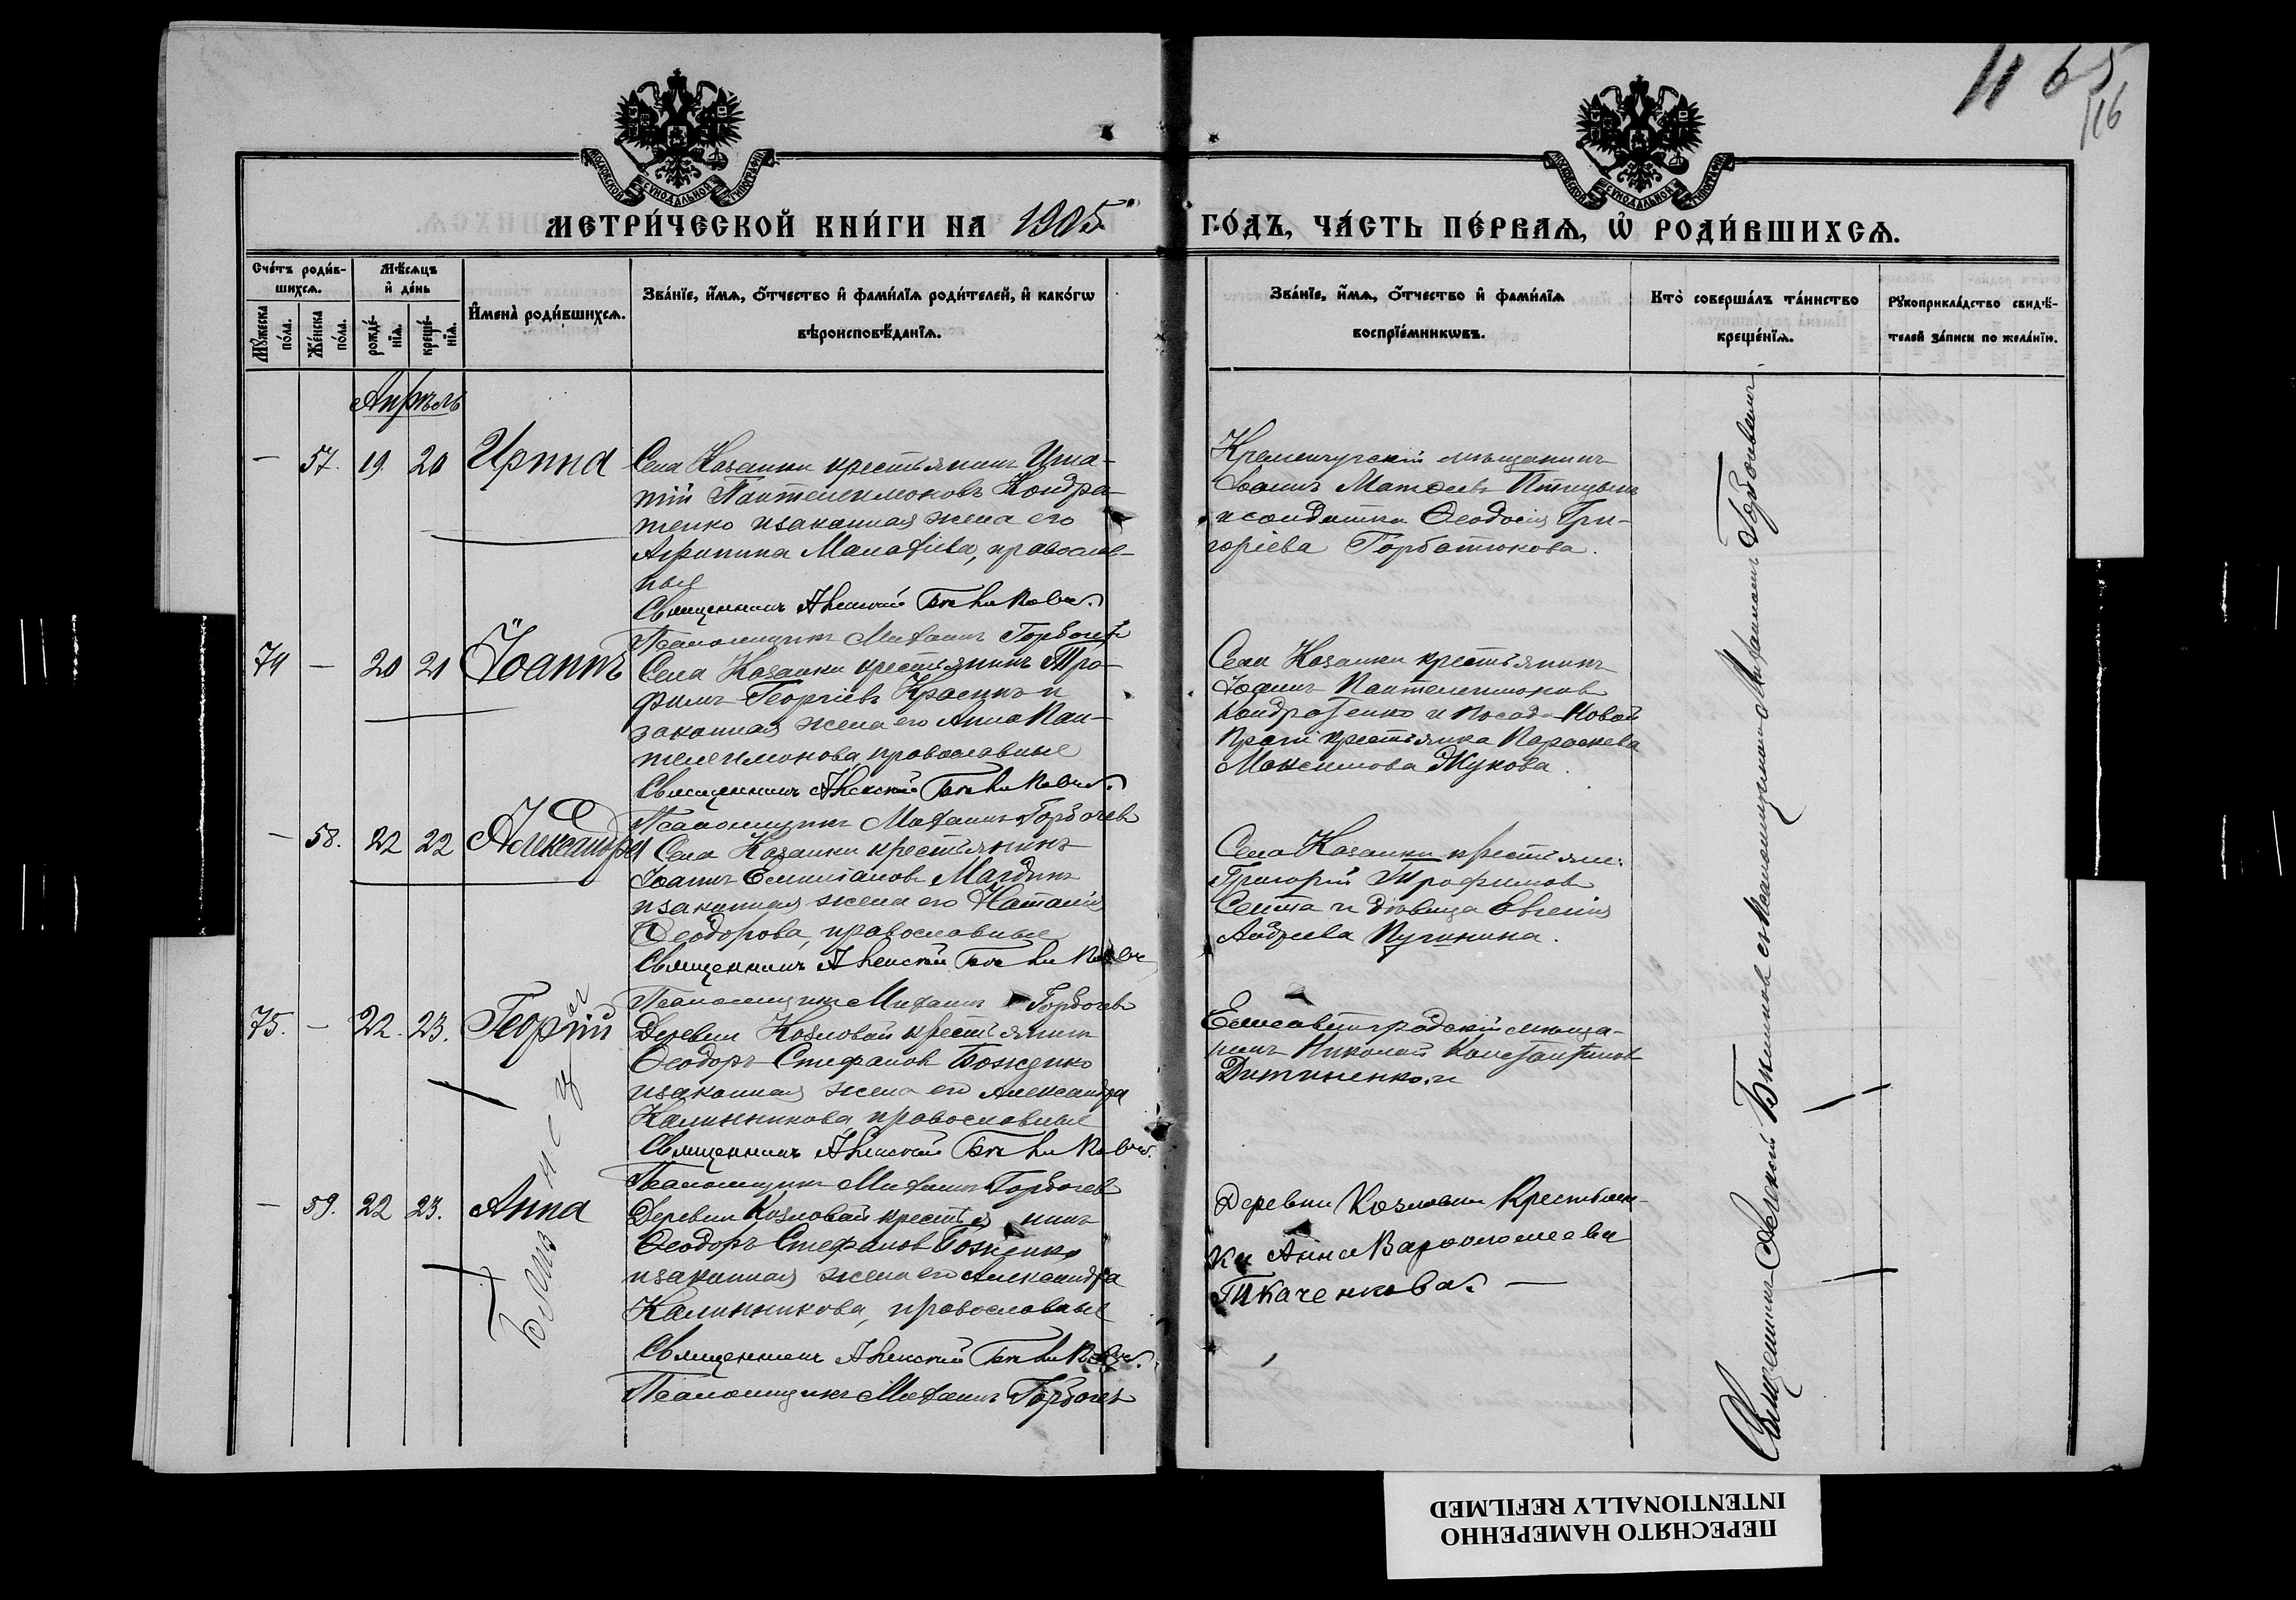 11 65
116
МОСКОВСКОЙ СѴНОДАЛЬНОЙ ТИПОГРАФІИ
МОСКОВСКОЙ СѴНОДАЛЬНОЙ ТИПОГРАФІИ
МЕТРИ́ЧЕСКОЙ КНИ́ГИ НА 1905
ГО́ДЪ, ЧА́СТЬ ПЕ́РВАѦ, Ѽ РОДИ́ВШИХСѦ.
Сче́тъ роди́в-
шихсѧ.
Мꙋ́жеска по́ла.
Же́нска по́ла.
Мѣ́сѧцъ
и҆ де́нь
рожде́-
нїѧ.
креще́-
нїѧ.
И҆мена̀ роди́вшихсѧ.
Зва́нїе, и҆́мѧ, ѻ҆́тчество и҆ фами́лїѧ роди́телей, и҆ како́гѡ
вѣроисповѣ́данїѧ.
Зва́нїе, и҆́мѧ, ѻ҆́тчество и҆ фами́лїѧ
воспрїе́мникѡвъ.
Кто̀ соверша́лъ та́инство
креще́нїѧ.
Рꙋкоприкла́дство свидѣ́-
телей за́писи по жела́нїю.
Апрѣль
— 57. 19. 20 Ирина
Села Казанки крестьянинъ Игна-
тій Пантелеимоновъ Кондра-
тенко и законная жена его
Агрипина Малафіева, православ-
ные
Священникъ Алексій
Псаломщикъ Михаилъ Горбачевъ
Кременчугскій мѣщанинъ
Іоаннъ Матѳеевъ Птицынъ
и солдатка Ѳеодосія Гри-
горіева Горбатюкова.
74 — 20 21 Іоаннъ
Села Казанки крестьянинъ Тро-
фимъ Георгіевъ Красинъ и
законная жена его Анна Пан-
телеимонова, православные
Священникъ Алексій
Псаломщикъ Михаилъ Горбачевъ
Села Казанки крестьянинъ
Іоаннъ Пантелеимоновъ
Кондратенко и посада Новой
Праги крестьянка Параскева
Максимова Жукова.
— 58. 22 22 Александра
Села Казанки крестьянинъ
Іоаннъ Емиліановъ
и законная жена его Наталія
Ѳеодорова, православные
Священникъ Алексій
Псаломщикъ Михаилъ Горбачевъ
Села Казанки крестьян.
Григорій Трофимовъ
и дѣвица Евгенія
Андреева
75. — 22. 23. Георгій
Деревни Козловой крестьянинъ
Ѳеодоръ Стефановъ Боженко
и законная жена его Александра
Калинникова, православные
Священникъ Алексій
Псаломщикъ Михаилъ Горбачевъ
Елисаветградскій мѣща-
нинъ Николай Константиновъ
Дитиненко и
— 59. 22 23. Анна
Деревни Козловой крестьянинъ
Ѳеодоръ Стефановъ Боженко
и законная жена его Александра
Калинникова, православные
Священникъ Алексій
Псаломщикъ Михаилъ Горбачевъ
Деревни Козловой крестьян-
ка Анна Варѳоломеева
Ткаченкова. —
Священникъ Алексій съ Псаломщикомъ Михаиломъ Горбачевымъ
ПЕРЕСНЯТО НАМЕРЕННО
INTENTIONALLY REFILMED